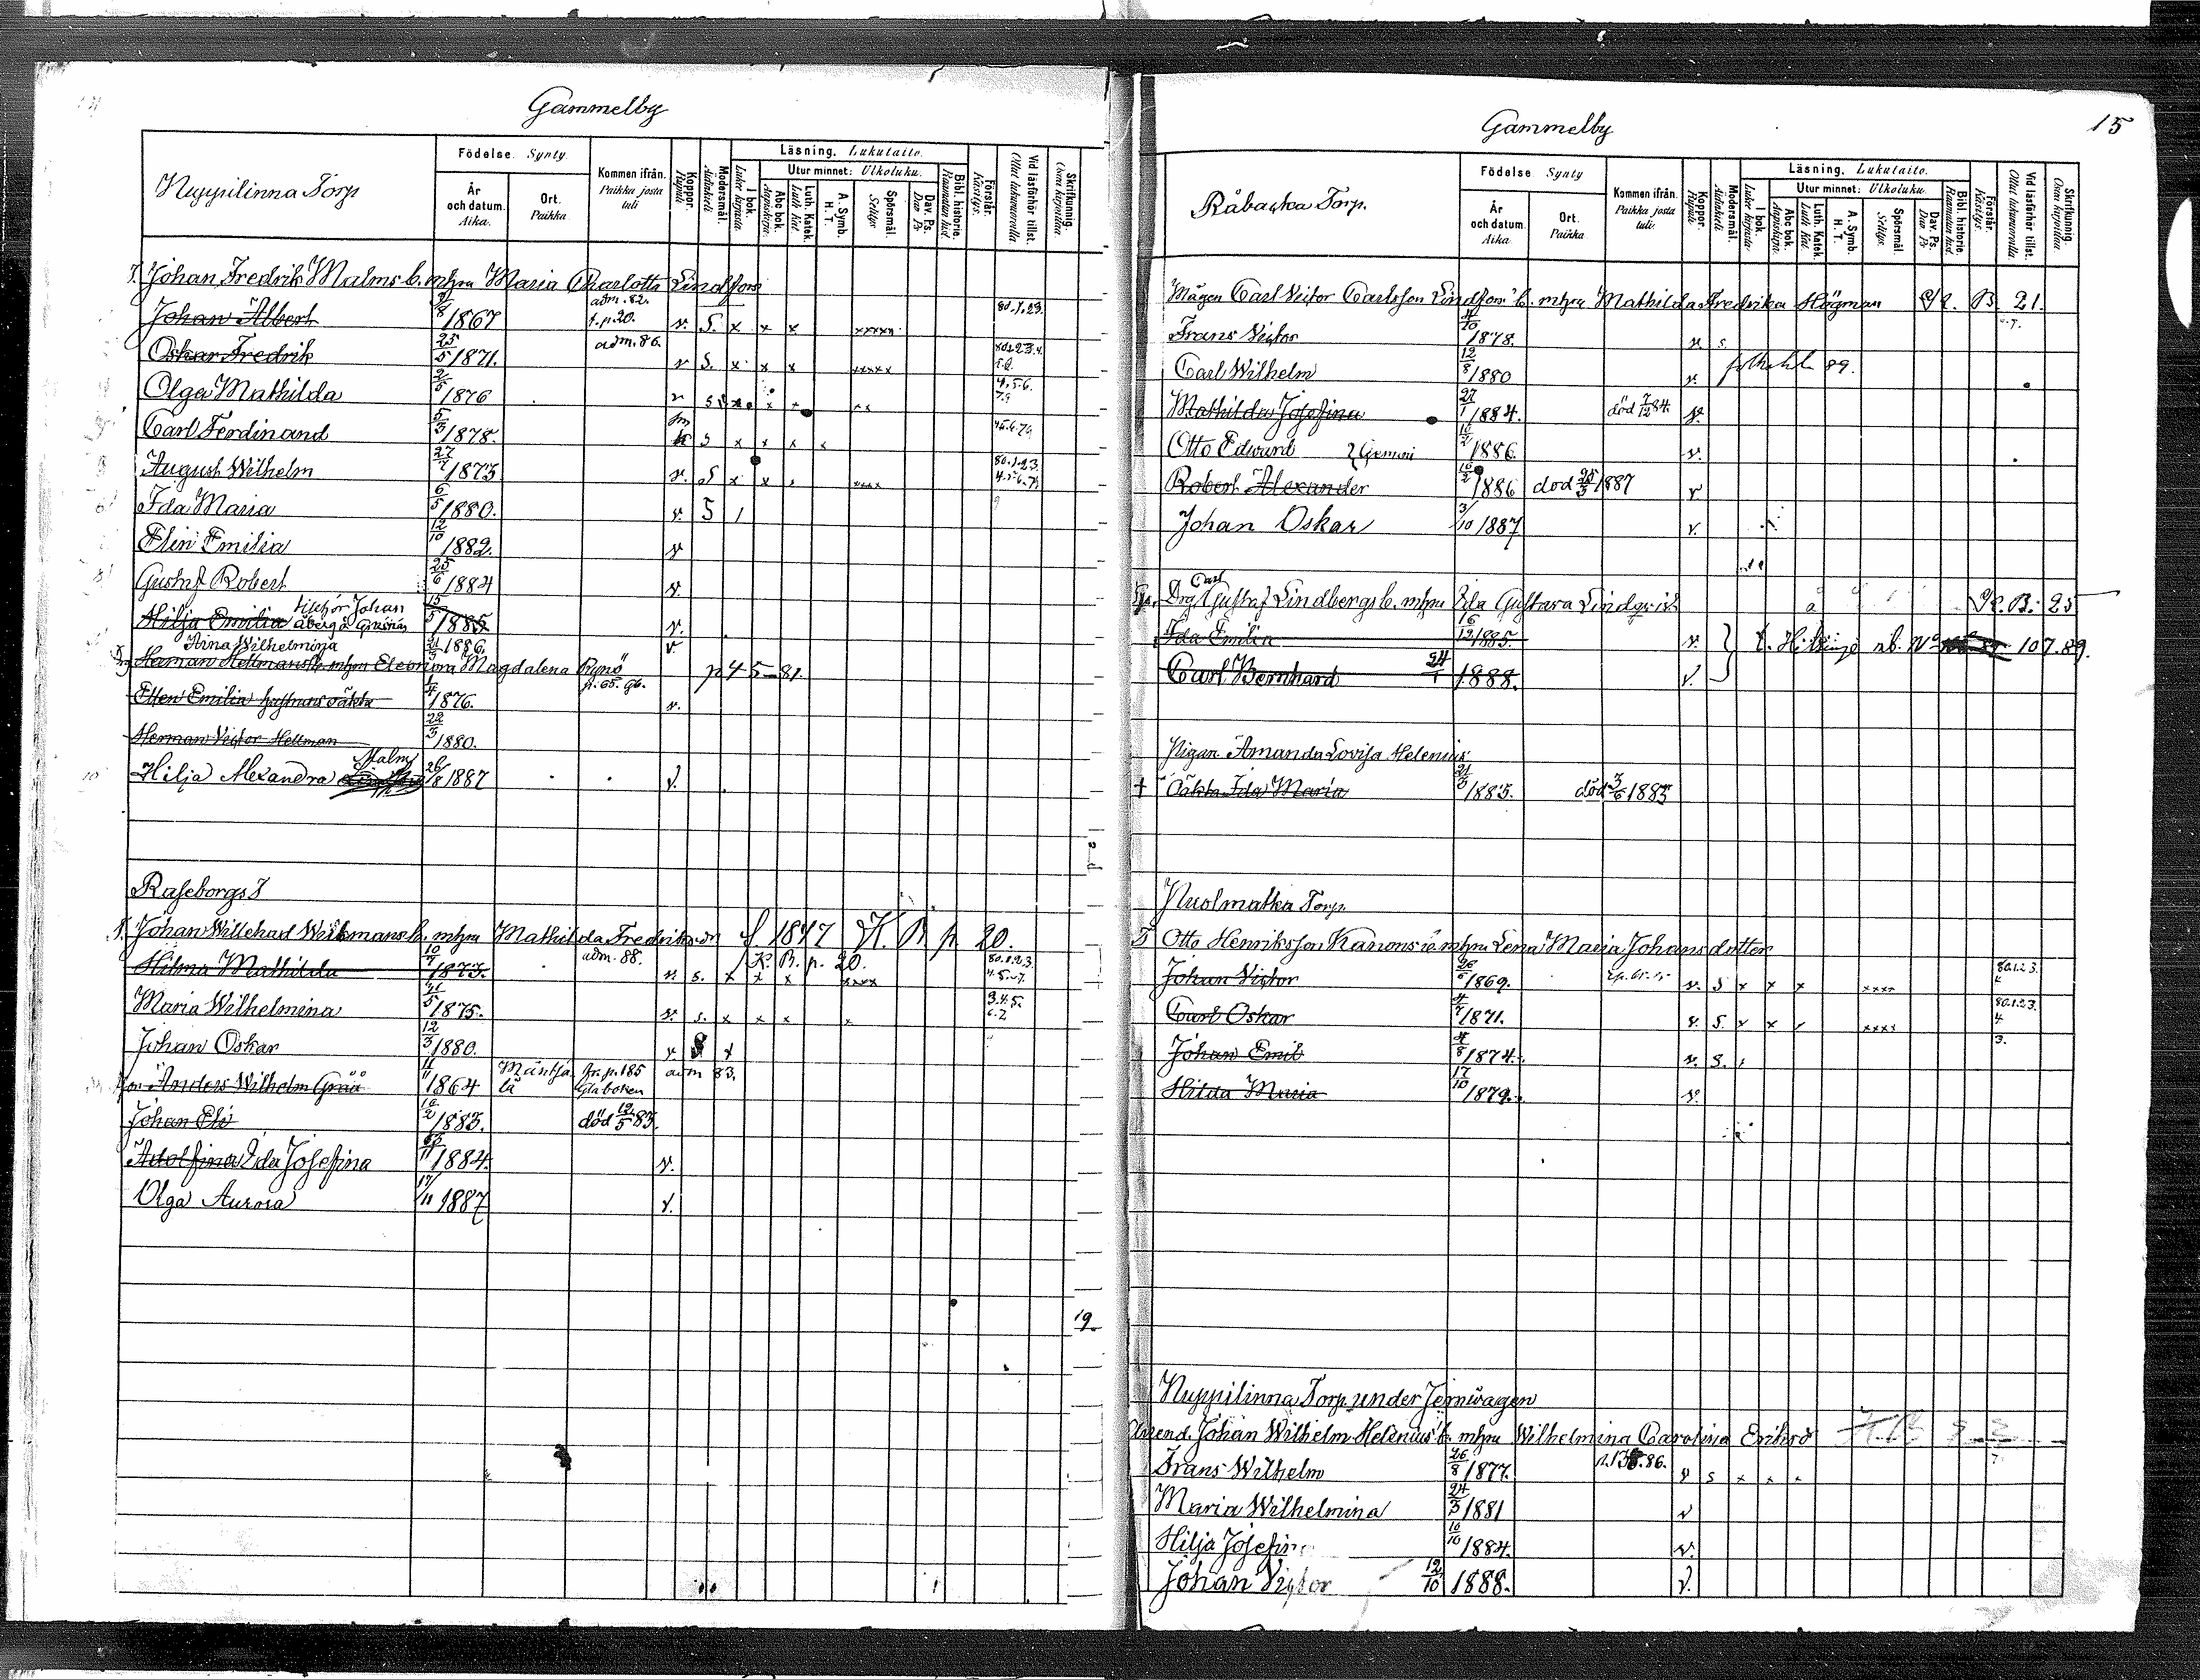 Gammelby
Nuppilinna Torp
Födelse. Synty.
År och datum. Aika.
Ort. Paikka
Kommen ifrån. Paikka josta tuli
Koppor. Rupuli
Modersmål. Äidinkieli
Läsning. Lukutaito.
I bok. Luku kirjasta.
Utur minnet: Ulkoluku.
Abc bok. Aapiskirja.
Luth. Katek. Luth. Kat.
A. Symb. H. T.
Spörsmål. Selitys.
Dav. Ps. Dav. Ps.
Bibl. historie. Raamatun hist.
Förstår. Käsitys.
Vid läsförhör tillst. Ollut lukuvuorolla
Skrifkunnig. Osaa kirjoittaa.
T. Johan Fredrik Malms b. m hru Maria Charlotta Lindfors
Johan Albert 8 1867 adm. 82. t. p 20. v. S. x x x xxxxx 80.1.23.
Oskar Fredrik 25/5 1871. adm. 86. v S. x x x xxxxx
Olga Mathilda 2/5 1876 v s x x x xx 4.5.6.
Carl Ferdinand 5/3 1878. S x x x x
August Wilhelm 27/7 1873 v. S x x xxx 80.1.23. 4.5.6.7.
Ida Maria 6/5 1880. v. S 1
Elin Emilia 12/10 1882. v
Gustaf Robert 25/6 1884 v
Hilja Emilia tillhör Johan Åberg å Gräsnäs 15/5 1885 v.
Aina Wilhelmina 21/3 1886. v
Herman Hellmans b. m hru Eleonora Magdalena Pignö p 45-81.
Ellen Emilia hustruns oäkta 1/4 1876. p. 65. 96. v.
Herman Victor Hellman 22/3 1880.
Hilja Alexandra Malms 26/8 1887 v.
Raseborgs T
T. Johan Willehard Weikmans b. m hru Mathilda Fredriksdr f 1847 K. B p 20.
Hilma Mathilda 10/7 1873. adm. 88. K. B. p. 20. v. s. x x x xxxx 80.1.2.3. 4.5.-7.
Maria Wilhelmina 21/5 1875. v. s. x x x x 3.4.5. 6.7
Johan Oskar 12/3 1880. v S x
Anders Wilhelm Gråå 11/11 1864 Mäntsälä fr. p. 185 Gla boken adm 83.
Johan Eli 16/2 1883. död 12/5 83.
Adolfina Ida Josefina 1884. v.
Olga Aurora 17/11 1887 v.
19.
15
Gammelby
Råbacka Torp.
Födelse Synty
År och datum. Aika
Ort. Paikka
Kommen ifrån. Paikka josta tuli.
Koppor. Rupuli.
Modersmål. Äidinkieli
Läsning. Lukutaito.
I bok. Luku kirjasta
Utur minnet: Ulkoluku.
Abc bok. Aapiskirja.
Luth. Katek. Luth. Kat.
A. Symb. H. T.
Spörsmål. Selitys.
Dav. Ps. Dav. Ps.
Bibl. historie. Raamatun hist.
Förstår. Käsitys.
Vid läsförhör tillst. Ollut lukuvuorolla.
Skrifkunnig. Osaa kirjoittaa.
Mågen Carl Victor Carlsson Lindfors b. m hru Mathilda Fredrika Högman B. 21.
Frans Victor 4/10 1878. v. s
Carl Wilhelm 12/8 1880 v. 89.
Mathilda Josefina 27/1 1884. död 7/12 84. v.
Otto Edvard } Gemini 16/2 1886. v.
Robert Alexander 16/2 1886 död 25/3 1887 v
Johan Oskar 3/10 1887 v.
Drg Carl Gustaf Lindbergs b. m hru Ida Gustava Lindqvist K. B. 25
Ida Emilia 16/12 1885. v. } t. Hiitinge nb. No 107.89.
Carl Bernhard 24/1 1888. v.
Pigan Amanda Lovisa Helenius
+ Oäkta Ida Maria 21/3 1885. död 3/6 1885
Nuolmatka Torp
T Otto Henriksson Kanons b m hru Lena Maria Johansdotter
Johan Victor 26/6 1869. v. S x x x xxxx 80.1.2.3. 4
Carl Oskar 4/7 1871. v. S. x x x xxxx 80.1.2.3. 4
Johan Emil 4/8 1874. v. S. 3.
Hilda Maria 17/10 1879. v.
Nuppilinna Torp under Jernvägen
Arrend. Johan Wilhelm Helenius b. m hru Wilhelmina Carolina Eriksd
Frans Wilhelm 26/8 1877. v s x x x 7.
Maria Wilhelmina 24/3 1881 v
Hilja Josefina 16/10 1884. v.
Johan Victor 12/10 1888. v.